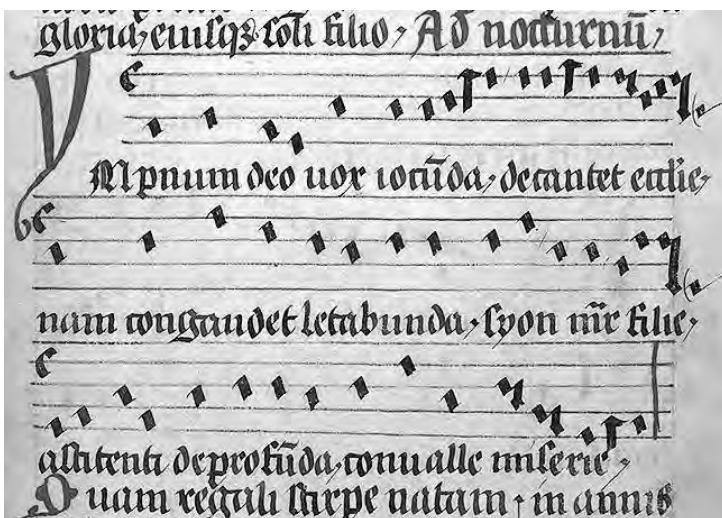 gloria, eiusq; soli filio, Ad nocturnū,
YMpnum deo uox iocūda, decantet ecclie,
nam congaudet letabunda, syon mr̄e filie,
assitenti de profūda, conualle miserie,
Quam regali stirpe natam, in annis